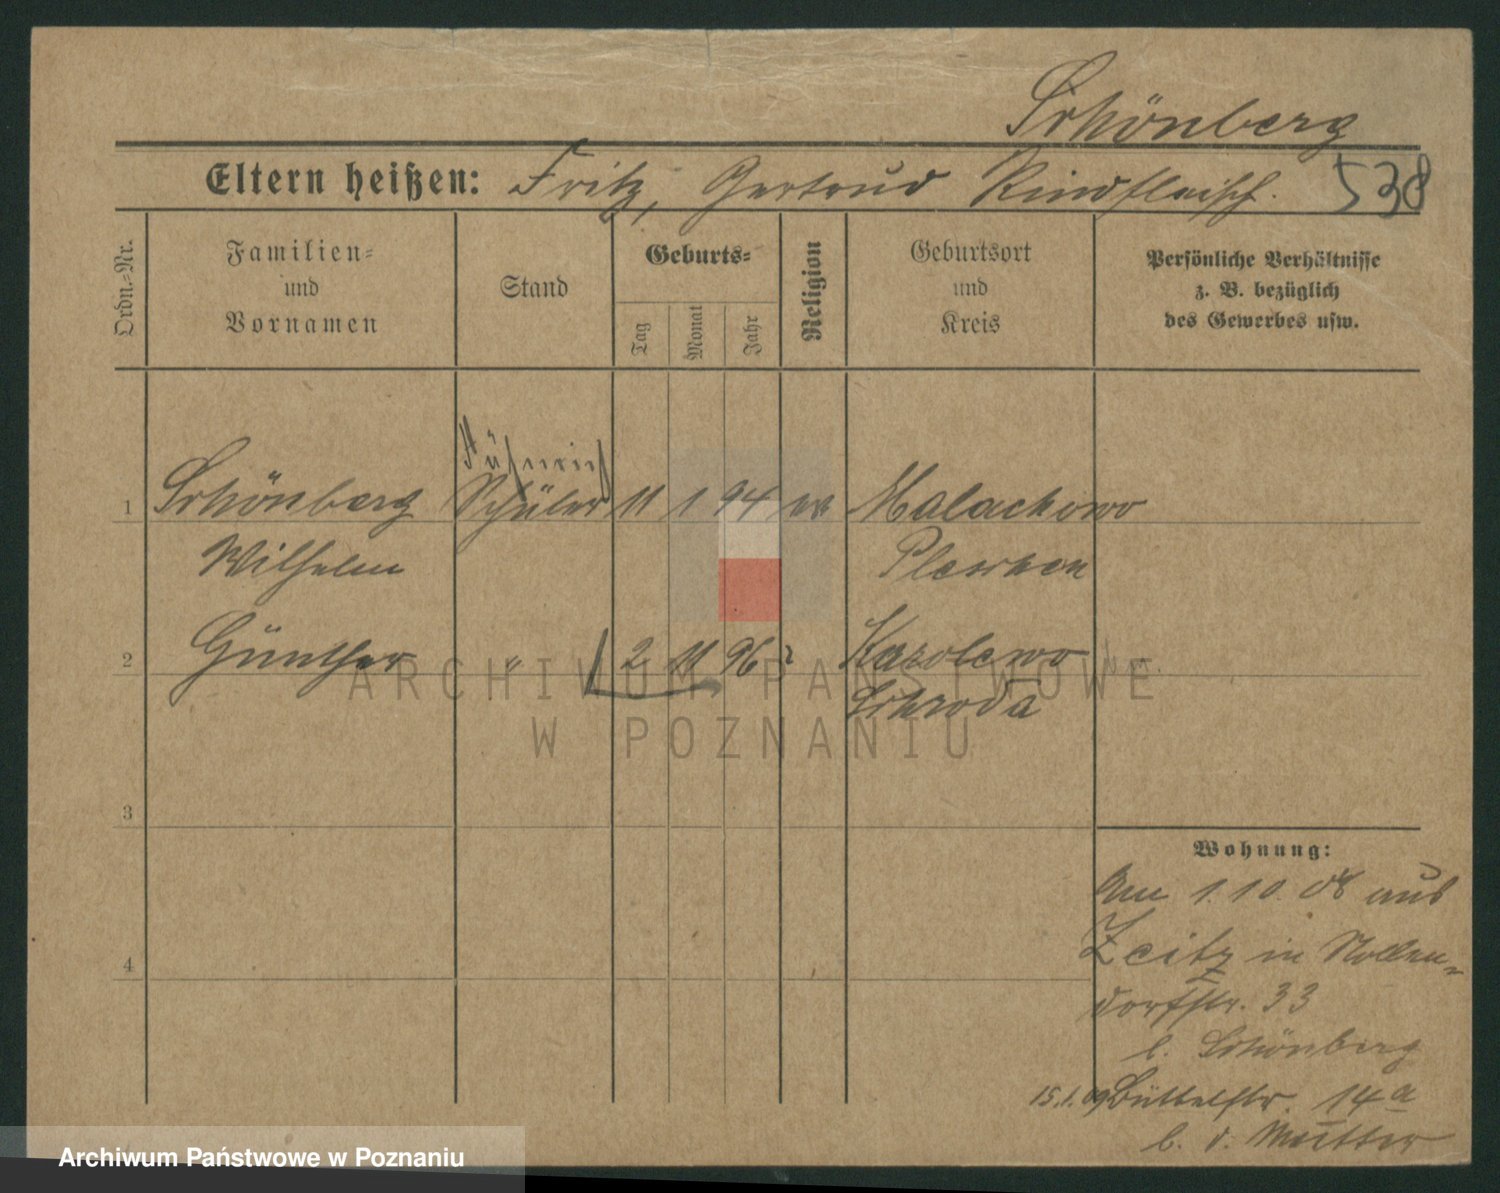 Schönberg
Eltern heißen: Fritz, Gertrud Rindfleisch. 538
Ordn.-Nr.
Familien-
und
Vornamen
Stand
Geburts-
Tag
Monat
Jahr
Religion
Geburtsort
und
Kreis
Persönliche Verhältnisse
z. B. bezüglich
des Gewerbes usw.
Fähnrich
1 Schönberg Schüler 11 1 94 ev Malachowo
Wilhelm Pleschen
2 Günther " 2 11 96 Karolewo
Schroda
ARCHIWUM PAŃSTWOWE
W POZNANIU
3
4
Wohnung:
Am 1.10.08 aus
Zeitz in Nollen-
dorfstr. 33
b. Schönberg
15.1.09 14a
b. d. Mutter
Archiwum Państwowe w Poznaniu